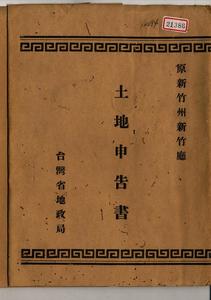 21386
原新竹州新竹廳
土地申告書
台灣省地政局